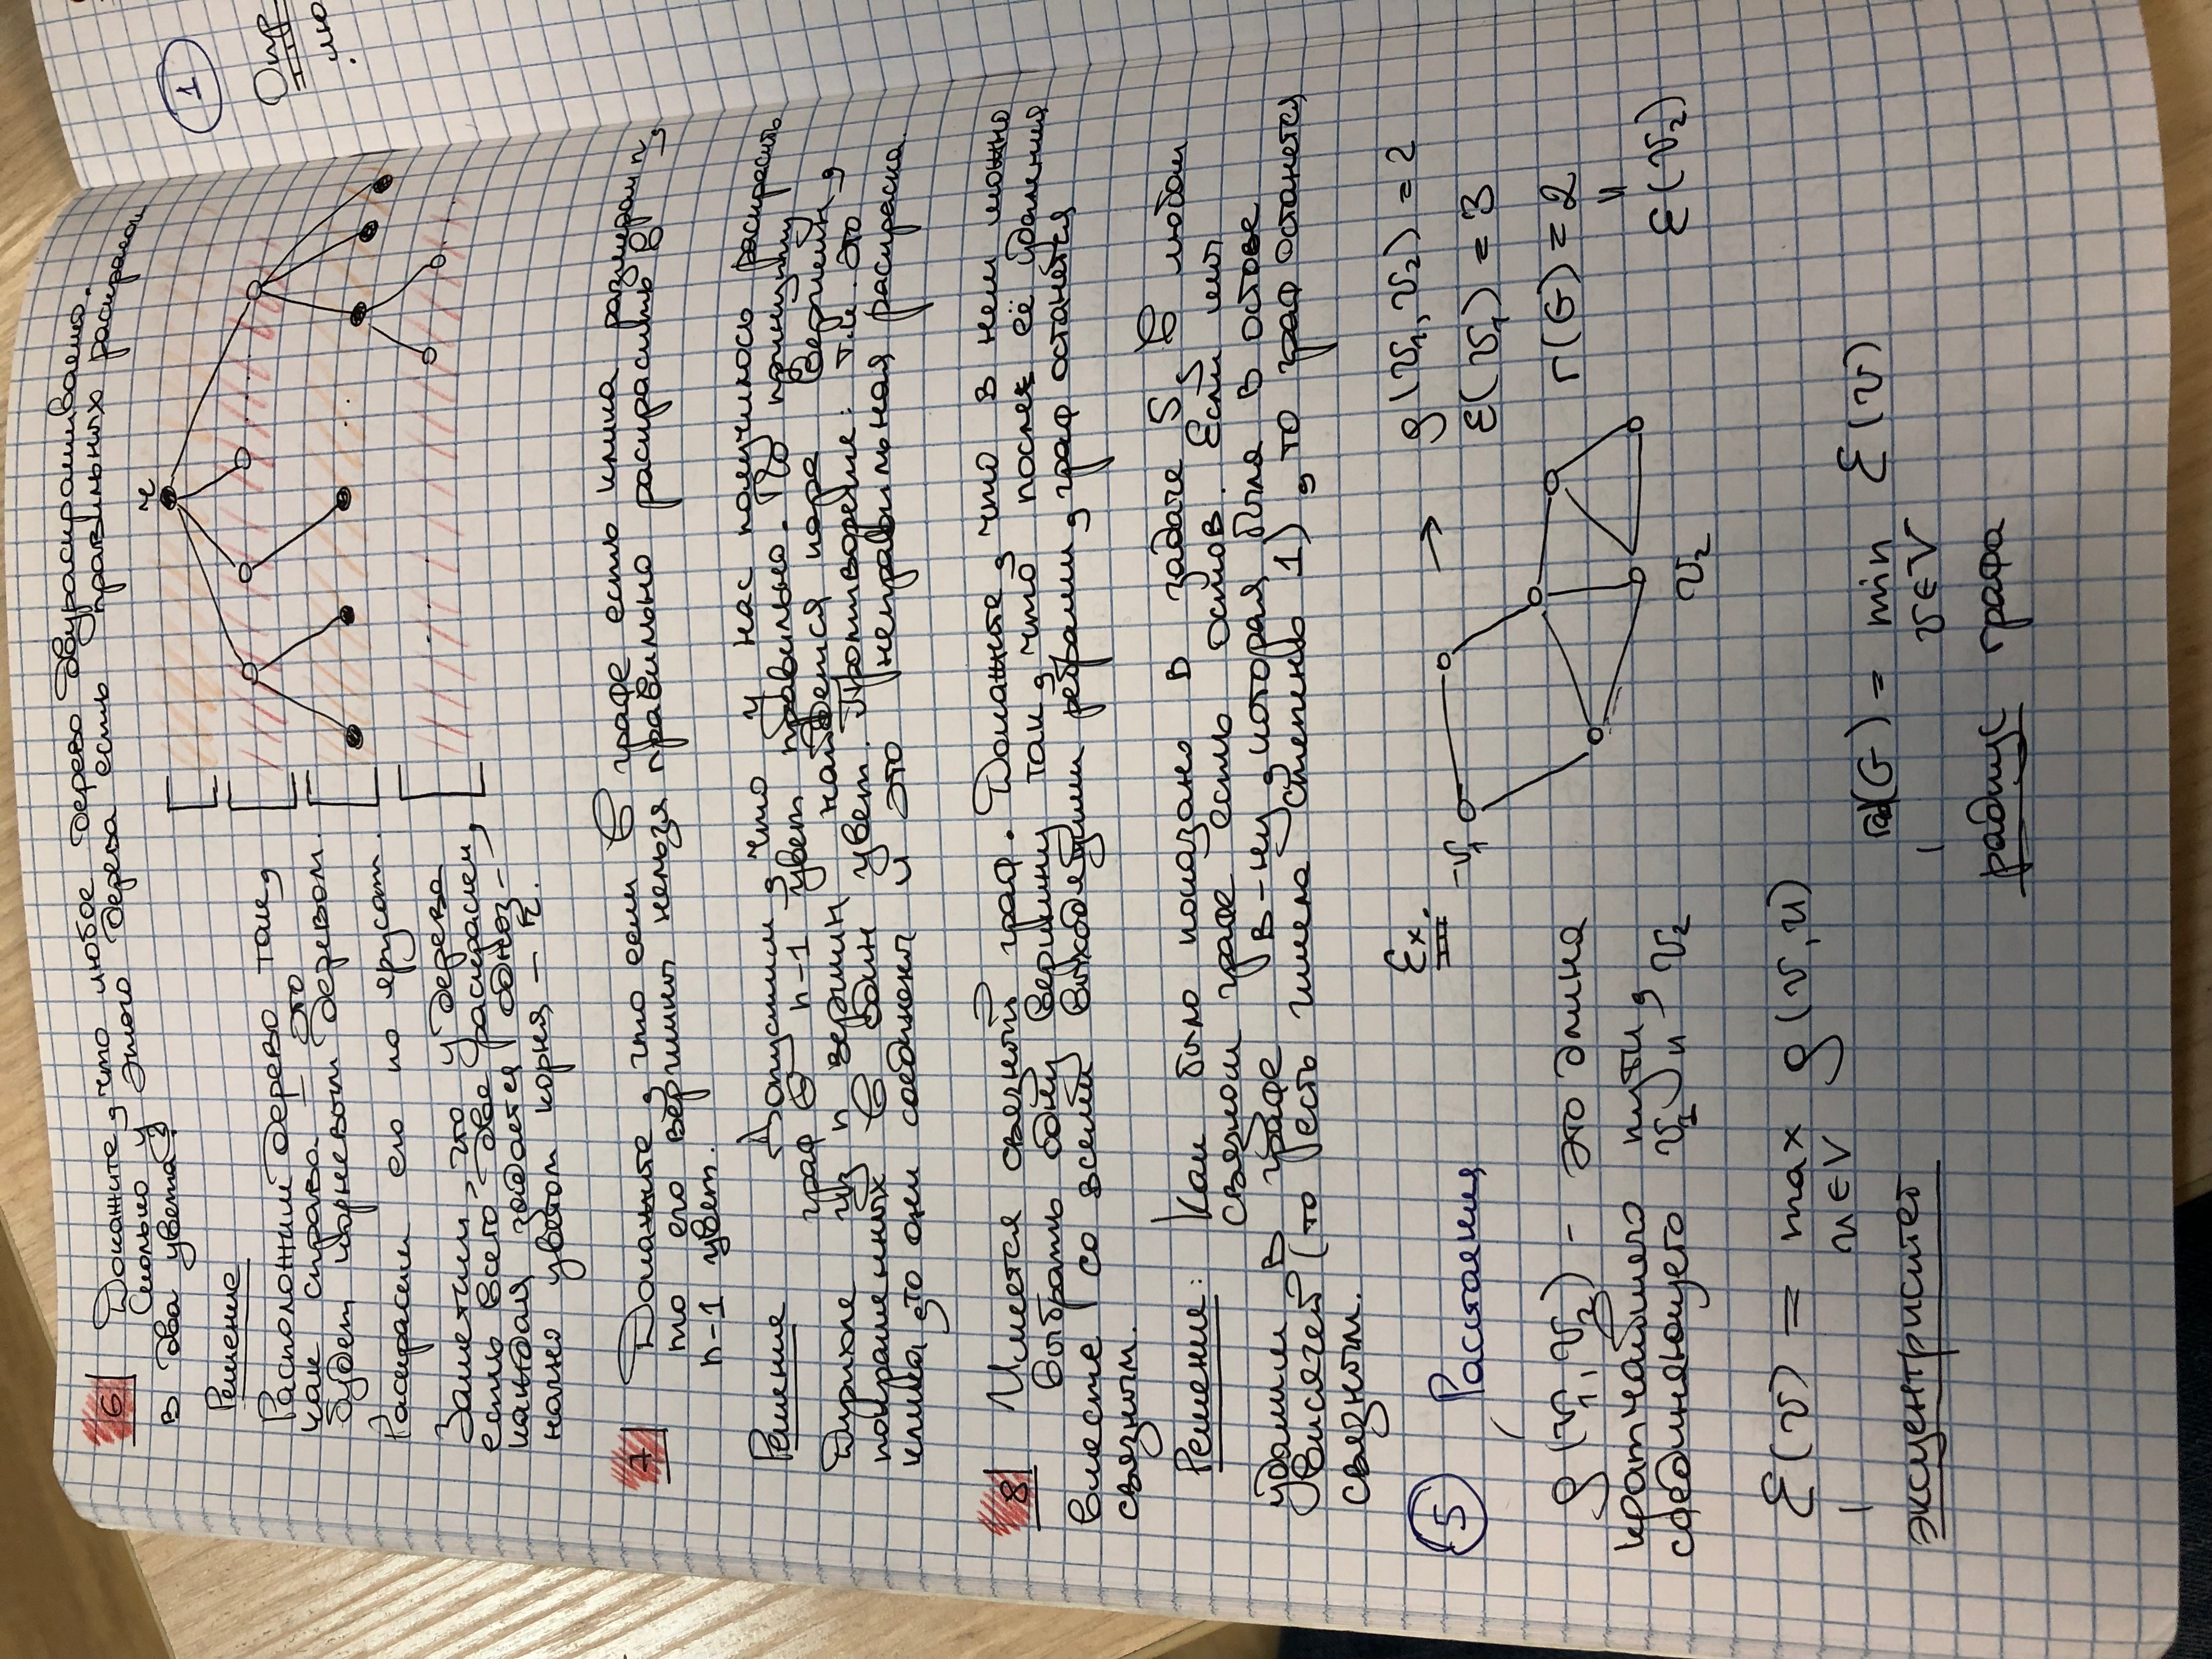 6 Докажите, что любое дерево двураскрашиваемо.
Сколько у этого дерева есть правильных раскрасок
в два цвета?
Решение
Расположим дерево так,
как справа – это
будет корневым деревом.
Раскрасим его по ярусам.
Заметим, что у дерева
есть всего две раскраски,
каждая задается одноз-
начно цветом корня – r.
r
7 Докажите, что если в графе есть клика размером n,
то его вершины нельзя правильно раскрасить в
n-1 цвет.
Решение Допустим, что у нас получилось раскрасить
граф в n-1 цвет правильно. По принципу
Дирихле из n вершин найдется пара вершин,
покрашенных в один цвет. Противоречие: т.к. это
клика, то они соединены и это неправильная раскраска.
8 Имеется связный граф. Докажите, что в нем можно
выбрать одну вершину так, что после её удаления
вместе со всеми выходящими ребрами, граф останется
связным.
Решение: Как было показано в задаче 5, в любом
связном графе есть остов. Если мы
удалим в графе в-ну, которая была в остове
висячей (то есть имела степень 1), то граф останется
связным.
5 Расстояния
ρ(v₁, v₂) - это длина
кратчайшего пути,
соединяющего v₁ и v₂
Ex.
v₁
v₂
→ ρ(v₁, v₂) = 2
ε(v₁) = 3
r(G) = 2
=
ε(v₂)
ε(v) = max ρ(v, u)
u∈V
эксцентриситет
rad(G) = min ε(v)
v∈V
радиус графа
1
Опр
лю